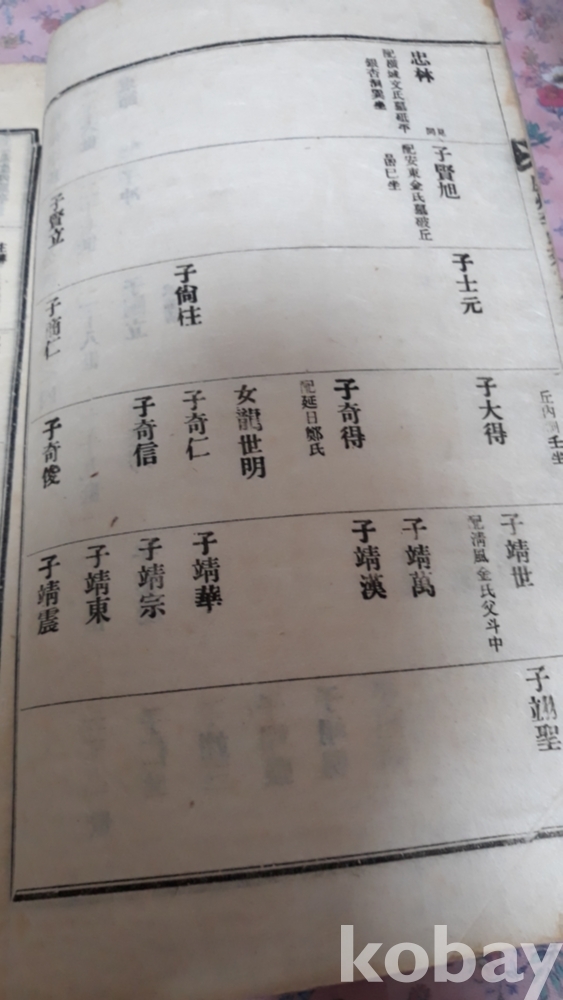 忠林
配橫城文氏墓砥平
銀杏洞巽坐
子賢旭
配安東金氏墓砥丘
子賢立
子士元
子尙仕
子商仁
丘內洞壬坐
子大得
子奇得
配延日鄭氏
女龍世明
子奇仁
子奇信
子奇俊
子靖世
配淸風金氏父斗中
子靖萬
子靖漢
子靖華
子靖宗
子靖東
子靖震
子翊聖
kobay